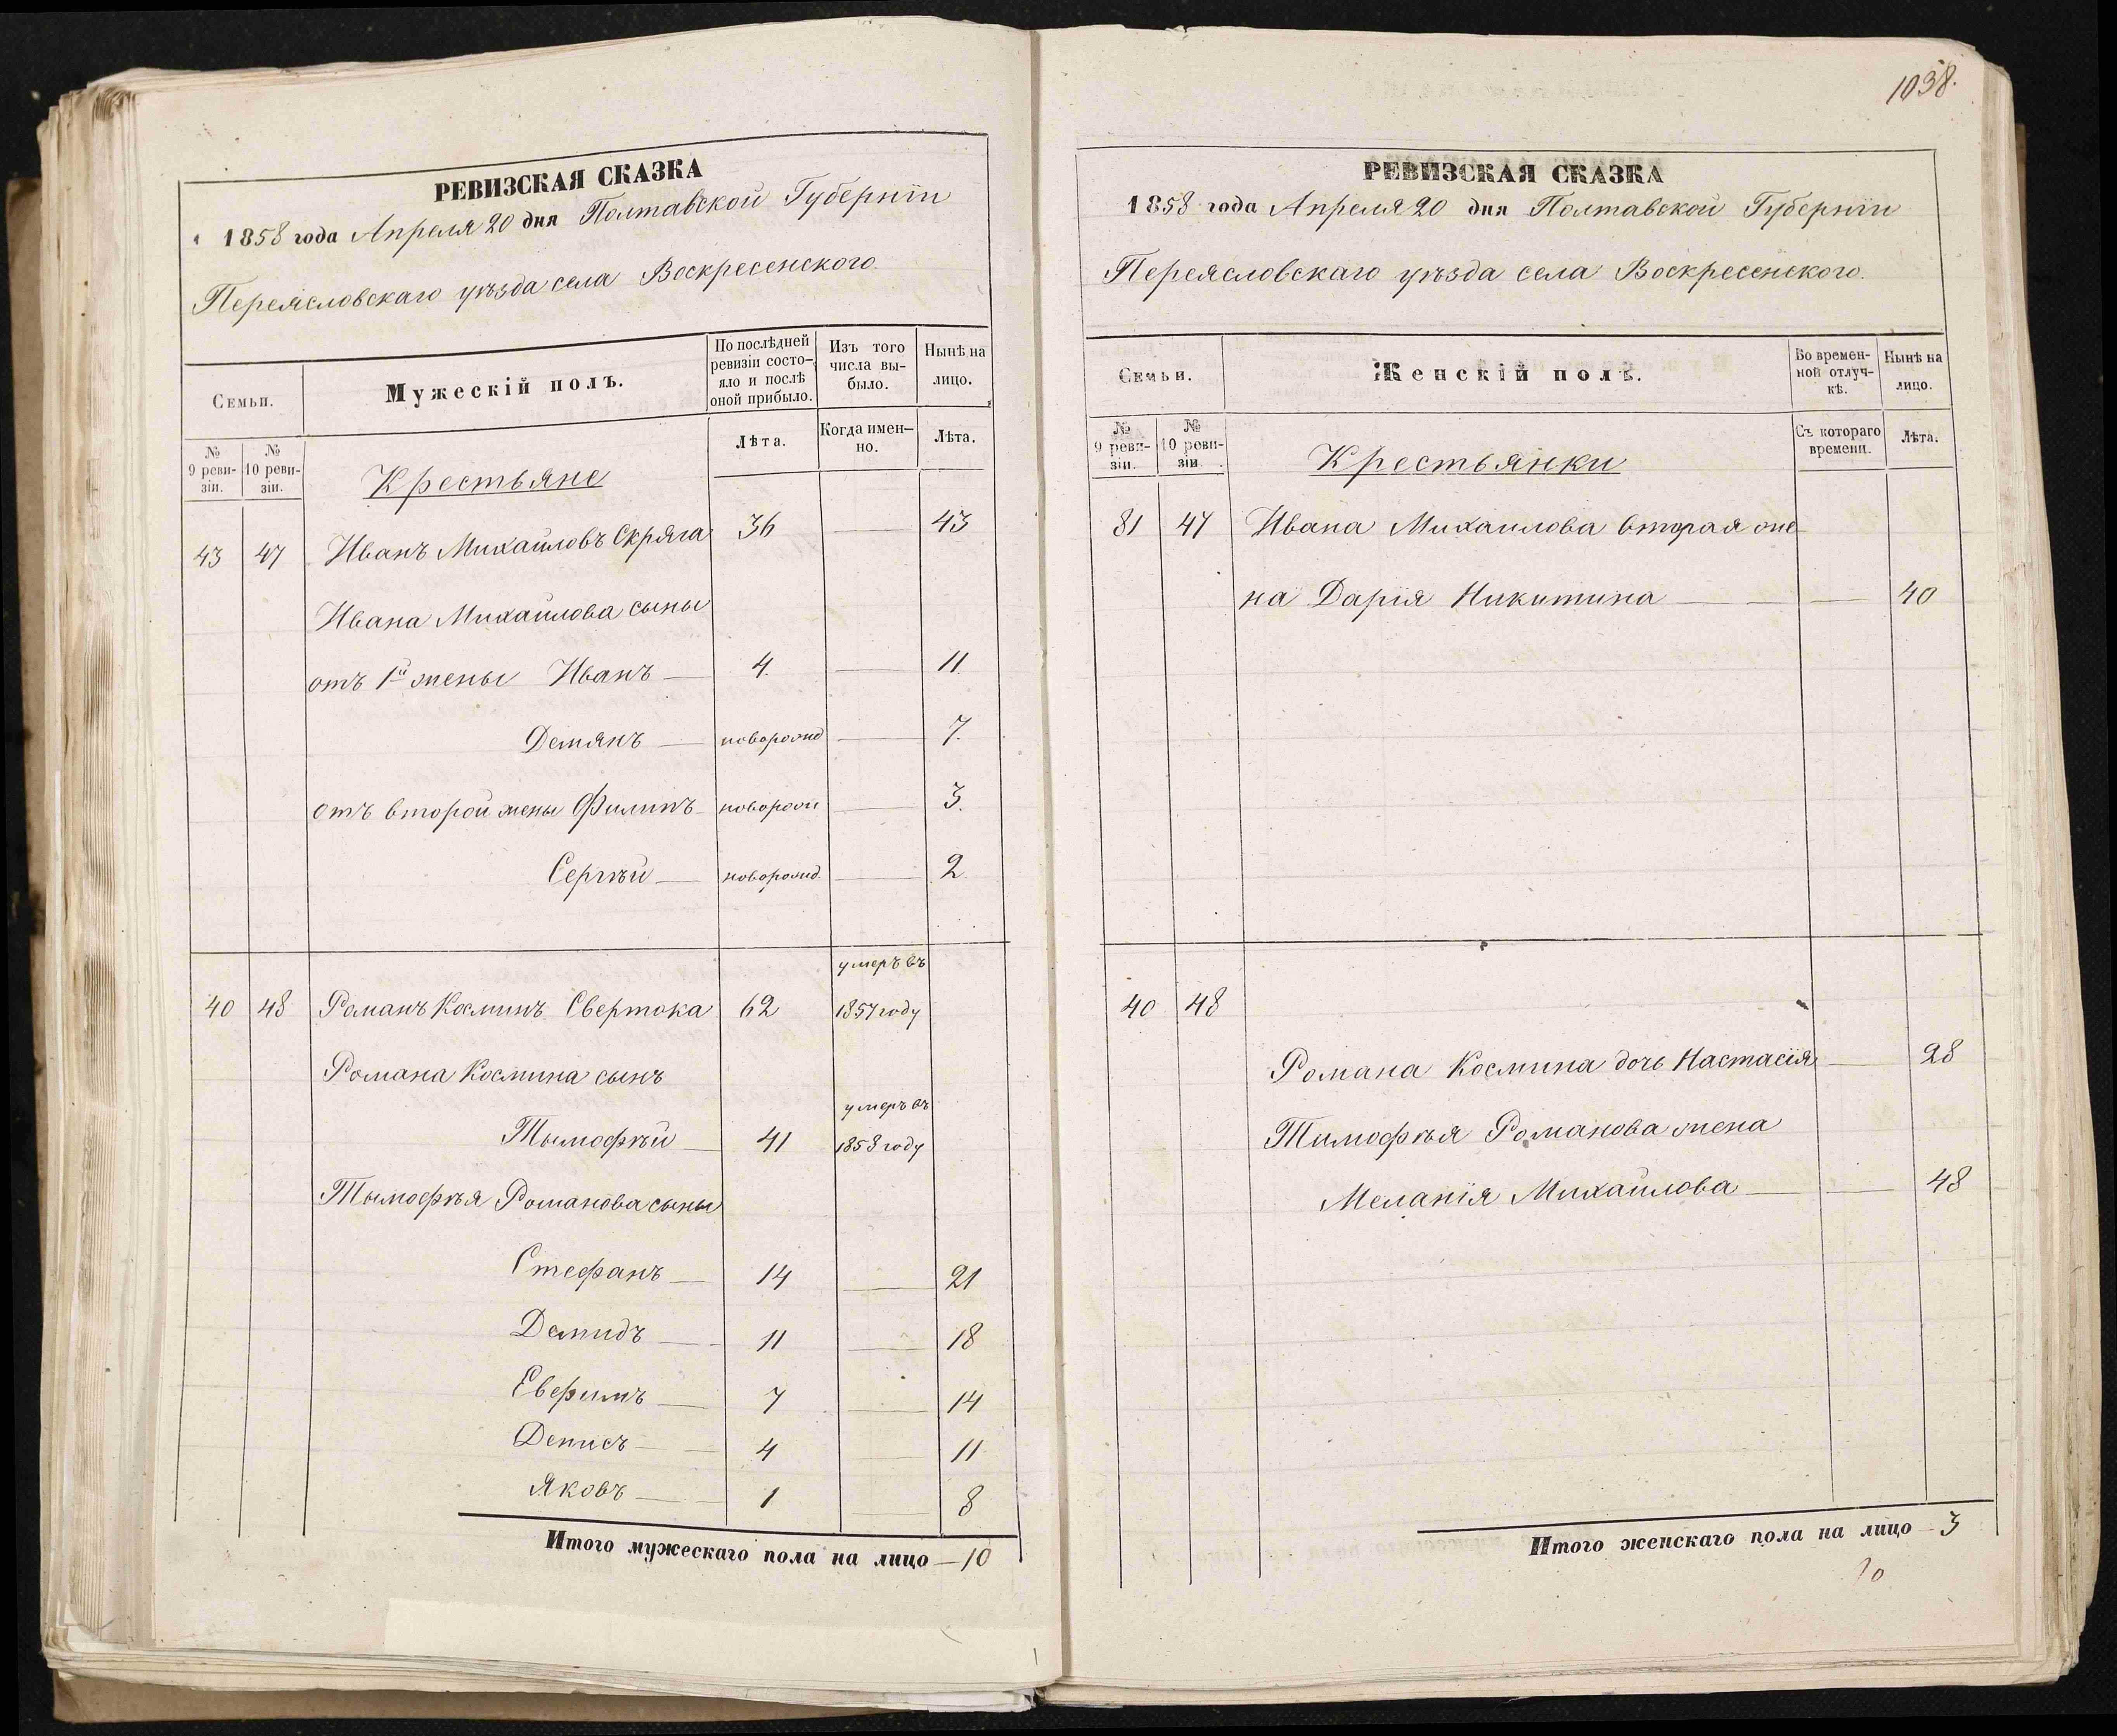 РЕВИЗСКАЯ СКАЗКА
1858 года Апреля 20 дня Полтавской Губернїи
Переясловскаго уѣзда села Воскресенского.
Семьи.
Мужескій полъ.
По послѣдней ревизіи состо-
яло и послѣ оной прибыло.
Изъ того числа вы-
было.
Нынѣ на лицо.
№ 9 реви-
зіи.
№ 10 реви-
зіи.
Крестьяне
Лѣта.
Когда имен-
но.
Лѣта.
43 47 Иванъ Михайловъ Скряга 36 — 43
Ивана Михайлова сыны
отъ 1й жены Иванъ — 4. — 11.
Демянъ — новорожд — 7.
отъ второй жены Филипъ — новорож — 3.
Сергѣй — новорожд. — 2.
умеръ въ
40 48 Романъ Косминъ Свертока 62 1857 году
Романа Космина сынъ
умеръ въ
Тымофѣй — 41 1858 году
Тымофѣя Романова сыны
Стефанъ — 14 — 21
Демидъ — 11 — 18
Евфимъ — 7 — 14
Денисъ — 4 — 11
Яковъ — 1 — 8
Итого мужескаго пола на лицо — 10
1038.
РЕВИЗСКАЯ СКАЗКА
1858 года Апреля 20 дня Полтавской Губернїи
Переясловскаго уѣзда села Воскресенского.
Семьи.
Женскій полъ.
Во времен-
ной отлуч-
кѣ.
Нынѣ на лицо.
№ 9 реви-
зіи.
№ 10 реви-
зіи.
Крестьянки
Съ котораго времени.
Лѣта.
81 47 Ивана Михайлова вторая же
на Дарїя Никитина — — 40
40 48
Романа Космина дочь Настасїя — 28
Тимофѣя Романова жена
Меланїя Михайлова — — 48
Итого женскаго пола на лицо — 3